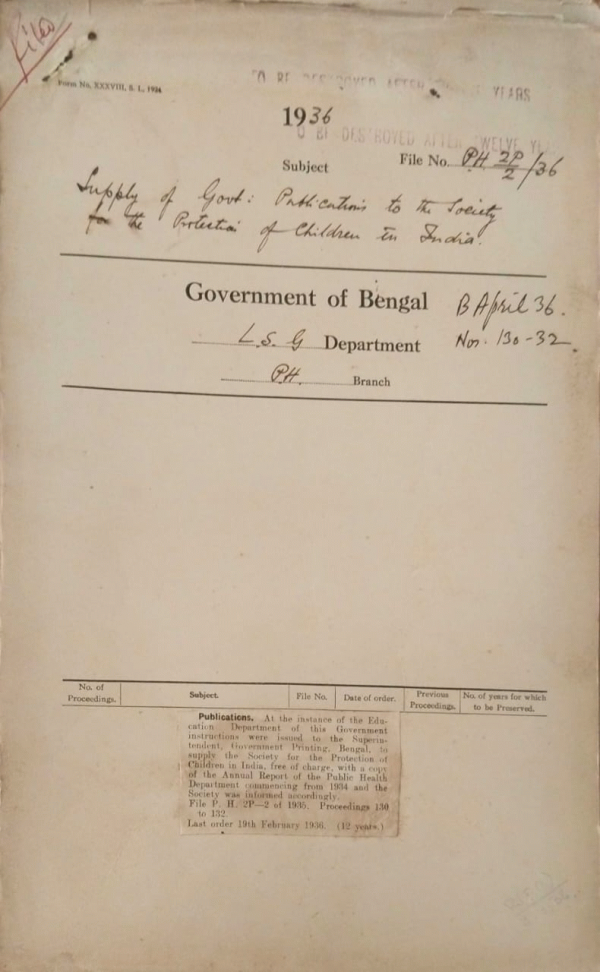 Filed
Form No. XXXVIII, S. L., 1934
TO BE DESTROYED AFTER YEARS
1936
TO BE DESTROYED AFTER TWELVE YE
Subject
File No. PH 2P/2/36
Supply of Govt: Publications to the Society
for the Protection of Children in India.
Government of Bengal
B April 36.
L. S. G Department
Nos. 130-32.
PH. Branch
No. of Proceedings.
Subject.
File No.
Date of order.
Previous Proceedings.
No. of years for which to be Preserved.
Publications. At the instance of the Edu-
cation Department of this Government
instructions were issued to the Superin-
tendent, Government Printing, Bengal, to
supply the Society for the Protection of
Children in India, free of charge, with a copy
of the Annual Report of the Public Health
Department commencing from 1934 and the
Society was informed accordingly.
File P. H. 2P—2 of 1936. Proceedings 130
to 132.
Last order 19th February 1936. (12 years.)